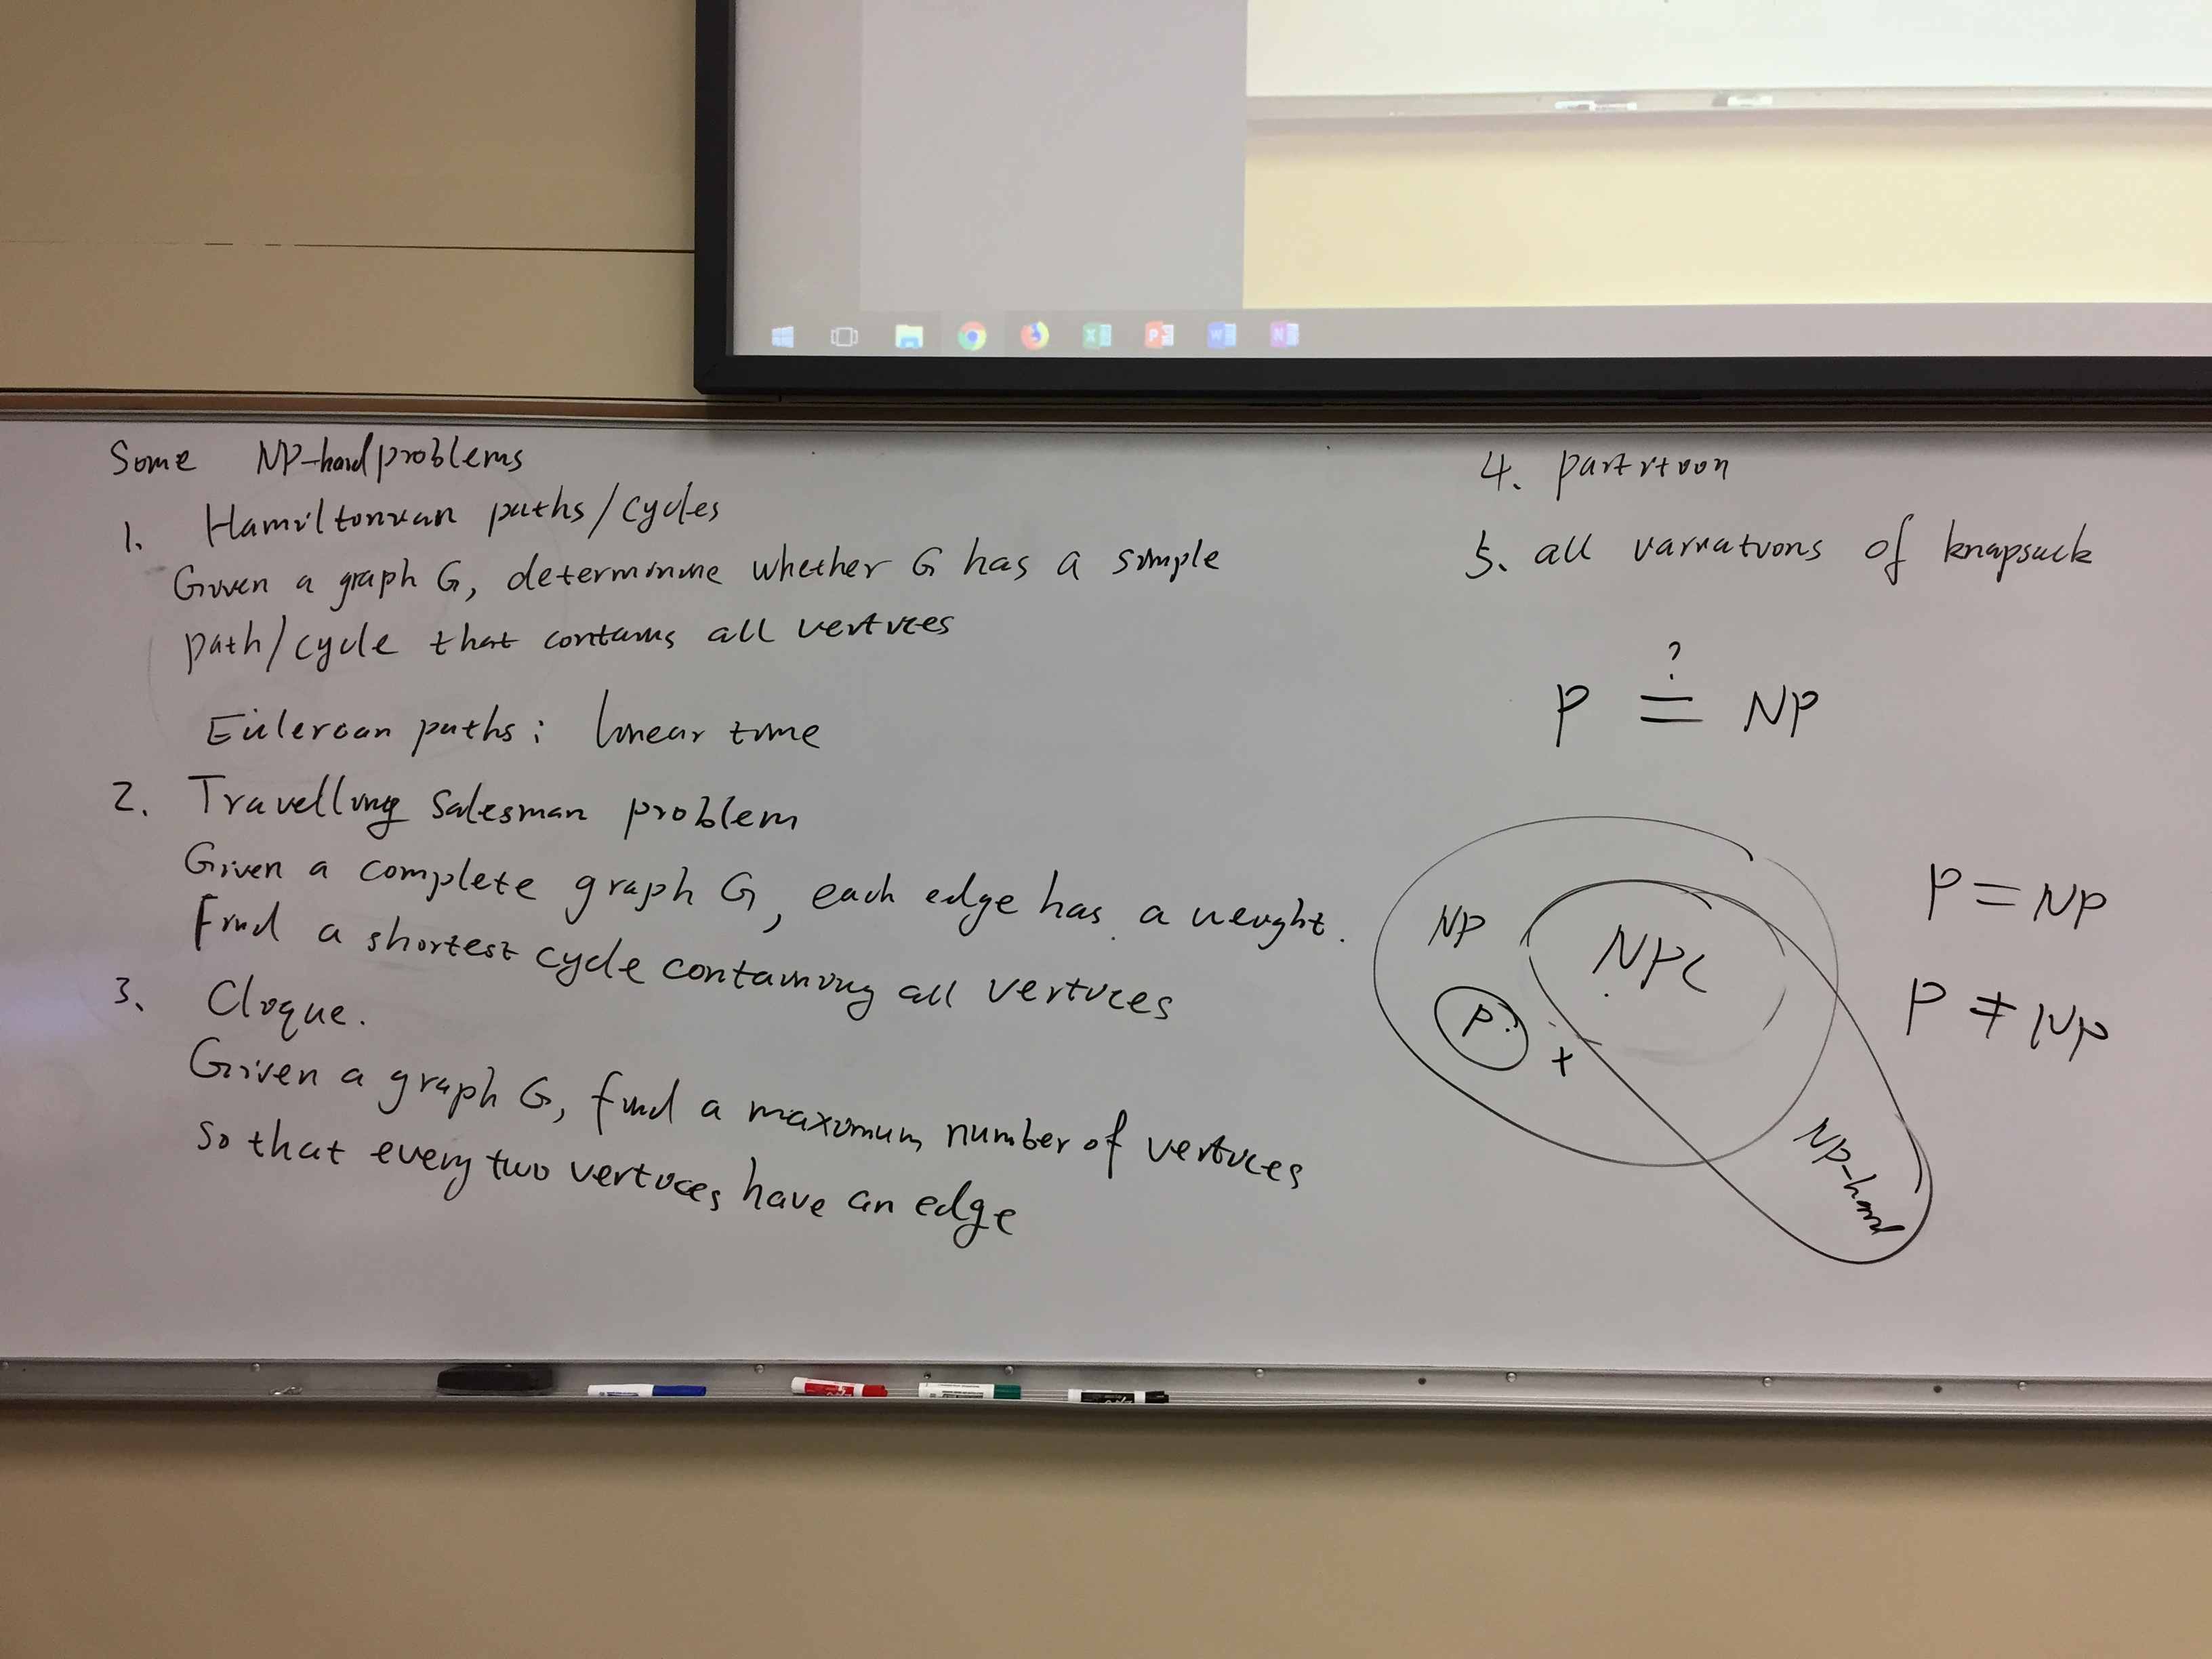 Some NP-hard problems
1. Hamiltonian paths/cycles
Given a graph G, determinine whether G has a simple
path/cycle that contains all vertices
Eulerian paths: linear time
2. Travelling salesman problem
Given a complete graph G, each edge has a weight.
Find a shortest cycle containing all vertices
3. Clique.
Given a graph G, find a maximum number of vertices
so that every two vertices have an edge
4. partition
5. all variations of knapsack
P ≟ NP
NP
NPC
P
+
NP-hard
P = NP
P ≠ NP